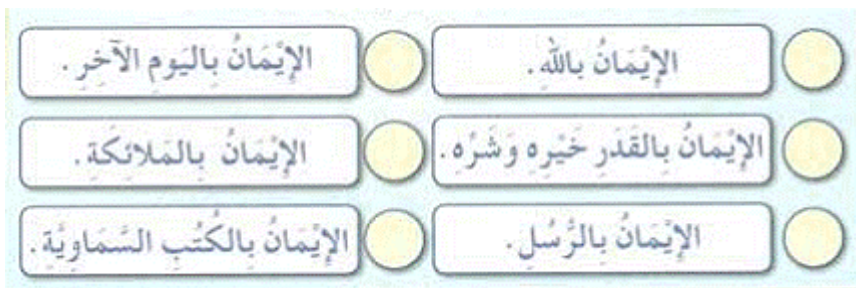 الإِيْمَانُ بِاللهِ.
الإِيْمَانُ بِاليَومِ الآخِرِ.
الإِيْمَانُ بِالقَدَرِ خَيْرِهِ وَشَرِّهِ.
الإِيْمَانُ بِالمَلائِكَةِ.
الإِيْمَانُ بِالرُّسُلِ.
الإِيْمَانُ بِالكُتُبِ السَّمَاوِيَّةِ.